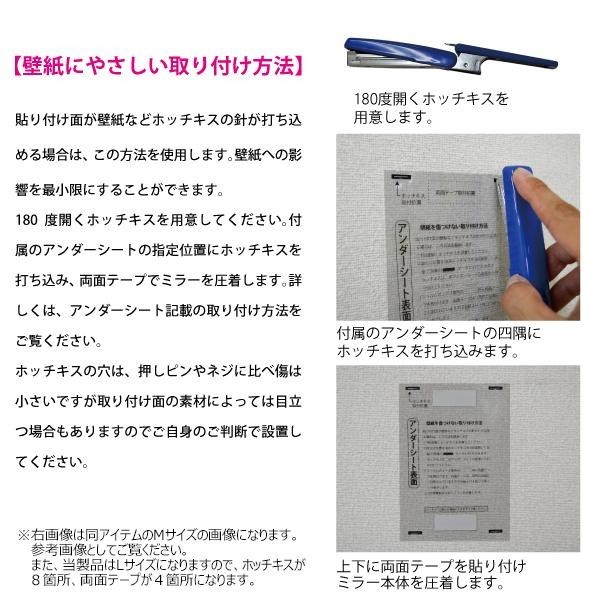 【壁紙にやさしい取り付け方法】
貼り付け面が壁紙などホッチキスの針が打ち込
める場合は、この方法を使用します。壁紙への影
響を最小限にすることができます。
180 度開くホッチキスを用意してください。付
属のアンダーシートの指定位置にホッチキスを
打ち込み、両面テープでミラーを圧着します。詳
しくは、アンダーシート記載の取り付け方法を
ご覧ください。
ホッチキスの穴は、押しピンやネジに比べ傷は
小さいですが取り付け面の素材によっては目立
つ場合もありますのでご自身のご判断で設置し
てください。
※右画像は同アイテムのMサイズの画像になります。
参考画像としてご覧ください。
また、当製品はLサイズになりますので、ホッチキスが
８箇所、両面テープが４箇所になります。
180度開くホッチキスを
用意します。
ホッチキス
取付位置
両面テープ取付位置
壁紙を傷つけない取り付け方法
アンダーシート表面
付属のアンダーシートの四隅に
ホッチキスを打ち込みます。
ホッチキス
取付位置
壁紙を傷つけない取り付け方法
アンダーシート表面
上下に両面テープを貼り付け
ミラー本体を圧着します。